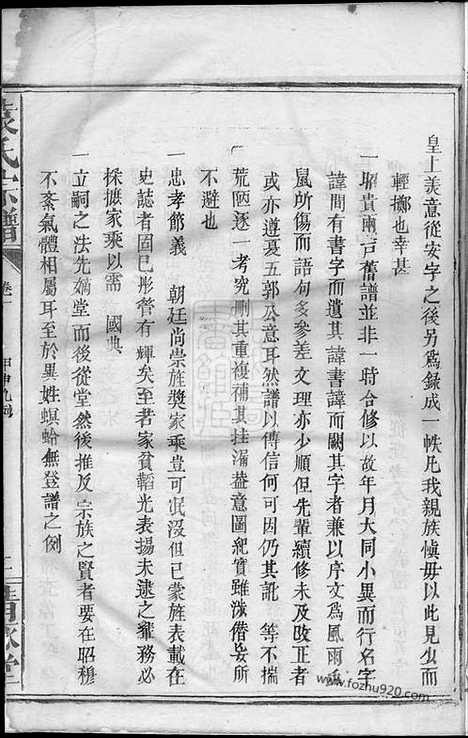 皇上美意從安字之後另為錄成一帙凡我親族慎毋以此見少而
輕擲也幸甚
一昭貴兩戸舊譜並非一時合修以故年月大同小異而行名字
諱間有書字而遺其諱書諱而闕其字者兼以序文為風雨
鼠所傷而語句多參差文理亦少順但先輩續修未及改正者
或亦遵夏五郭公意耳然譜以傳信何可因仍其訛 等不揣
荒陋逐一考究刪其重複補其挂漏葢意圖紀實雖涉僭妄所
不避也
一忠孝節義 朝廷尚崇旌獎家乘豈可泯沒但已蒙旌表載在
史誌者固已彤管有輝矣至若家貧韜光表揚未逮之輩務必
採摭家乘以需 國典
一立嗣之法先嫡堂而後從堂然後推及宗族之賢者要在昭穆
不紊氣體相屬耳至於異姓螟蛉無登譜之例
袁氏宗譜
卷
二
www.fozhu920.com